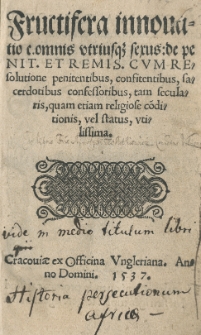 Fructifera innoua-
tio c.omnis vtriusq; sexus: de pe
NIT. ET REMIS. CVM RE-
solutione penitentibus, confitentibus, sa-
cerdotibus confessoribus, tam secula-
ris, quam etiam religiose cōdi-
tionis, vel status, vti-
lissima.
vide in medio titulum libri
Cracouiæ ex Officina Vngleriana. An-
no Domini. 1537.
Historia persecutionum
africæ